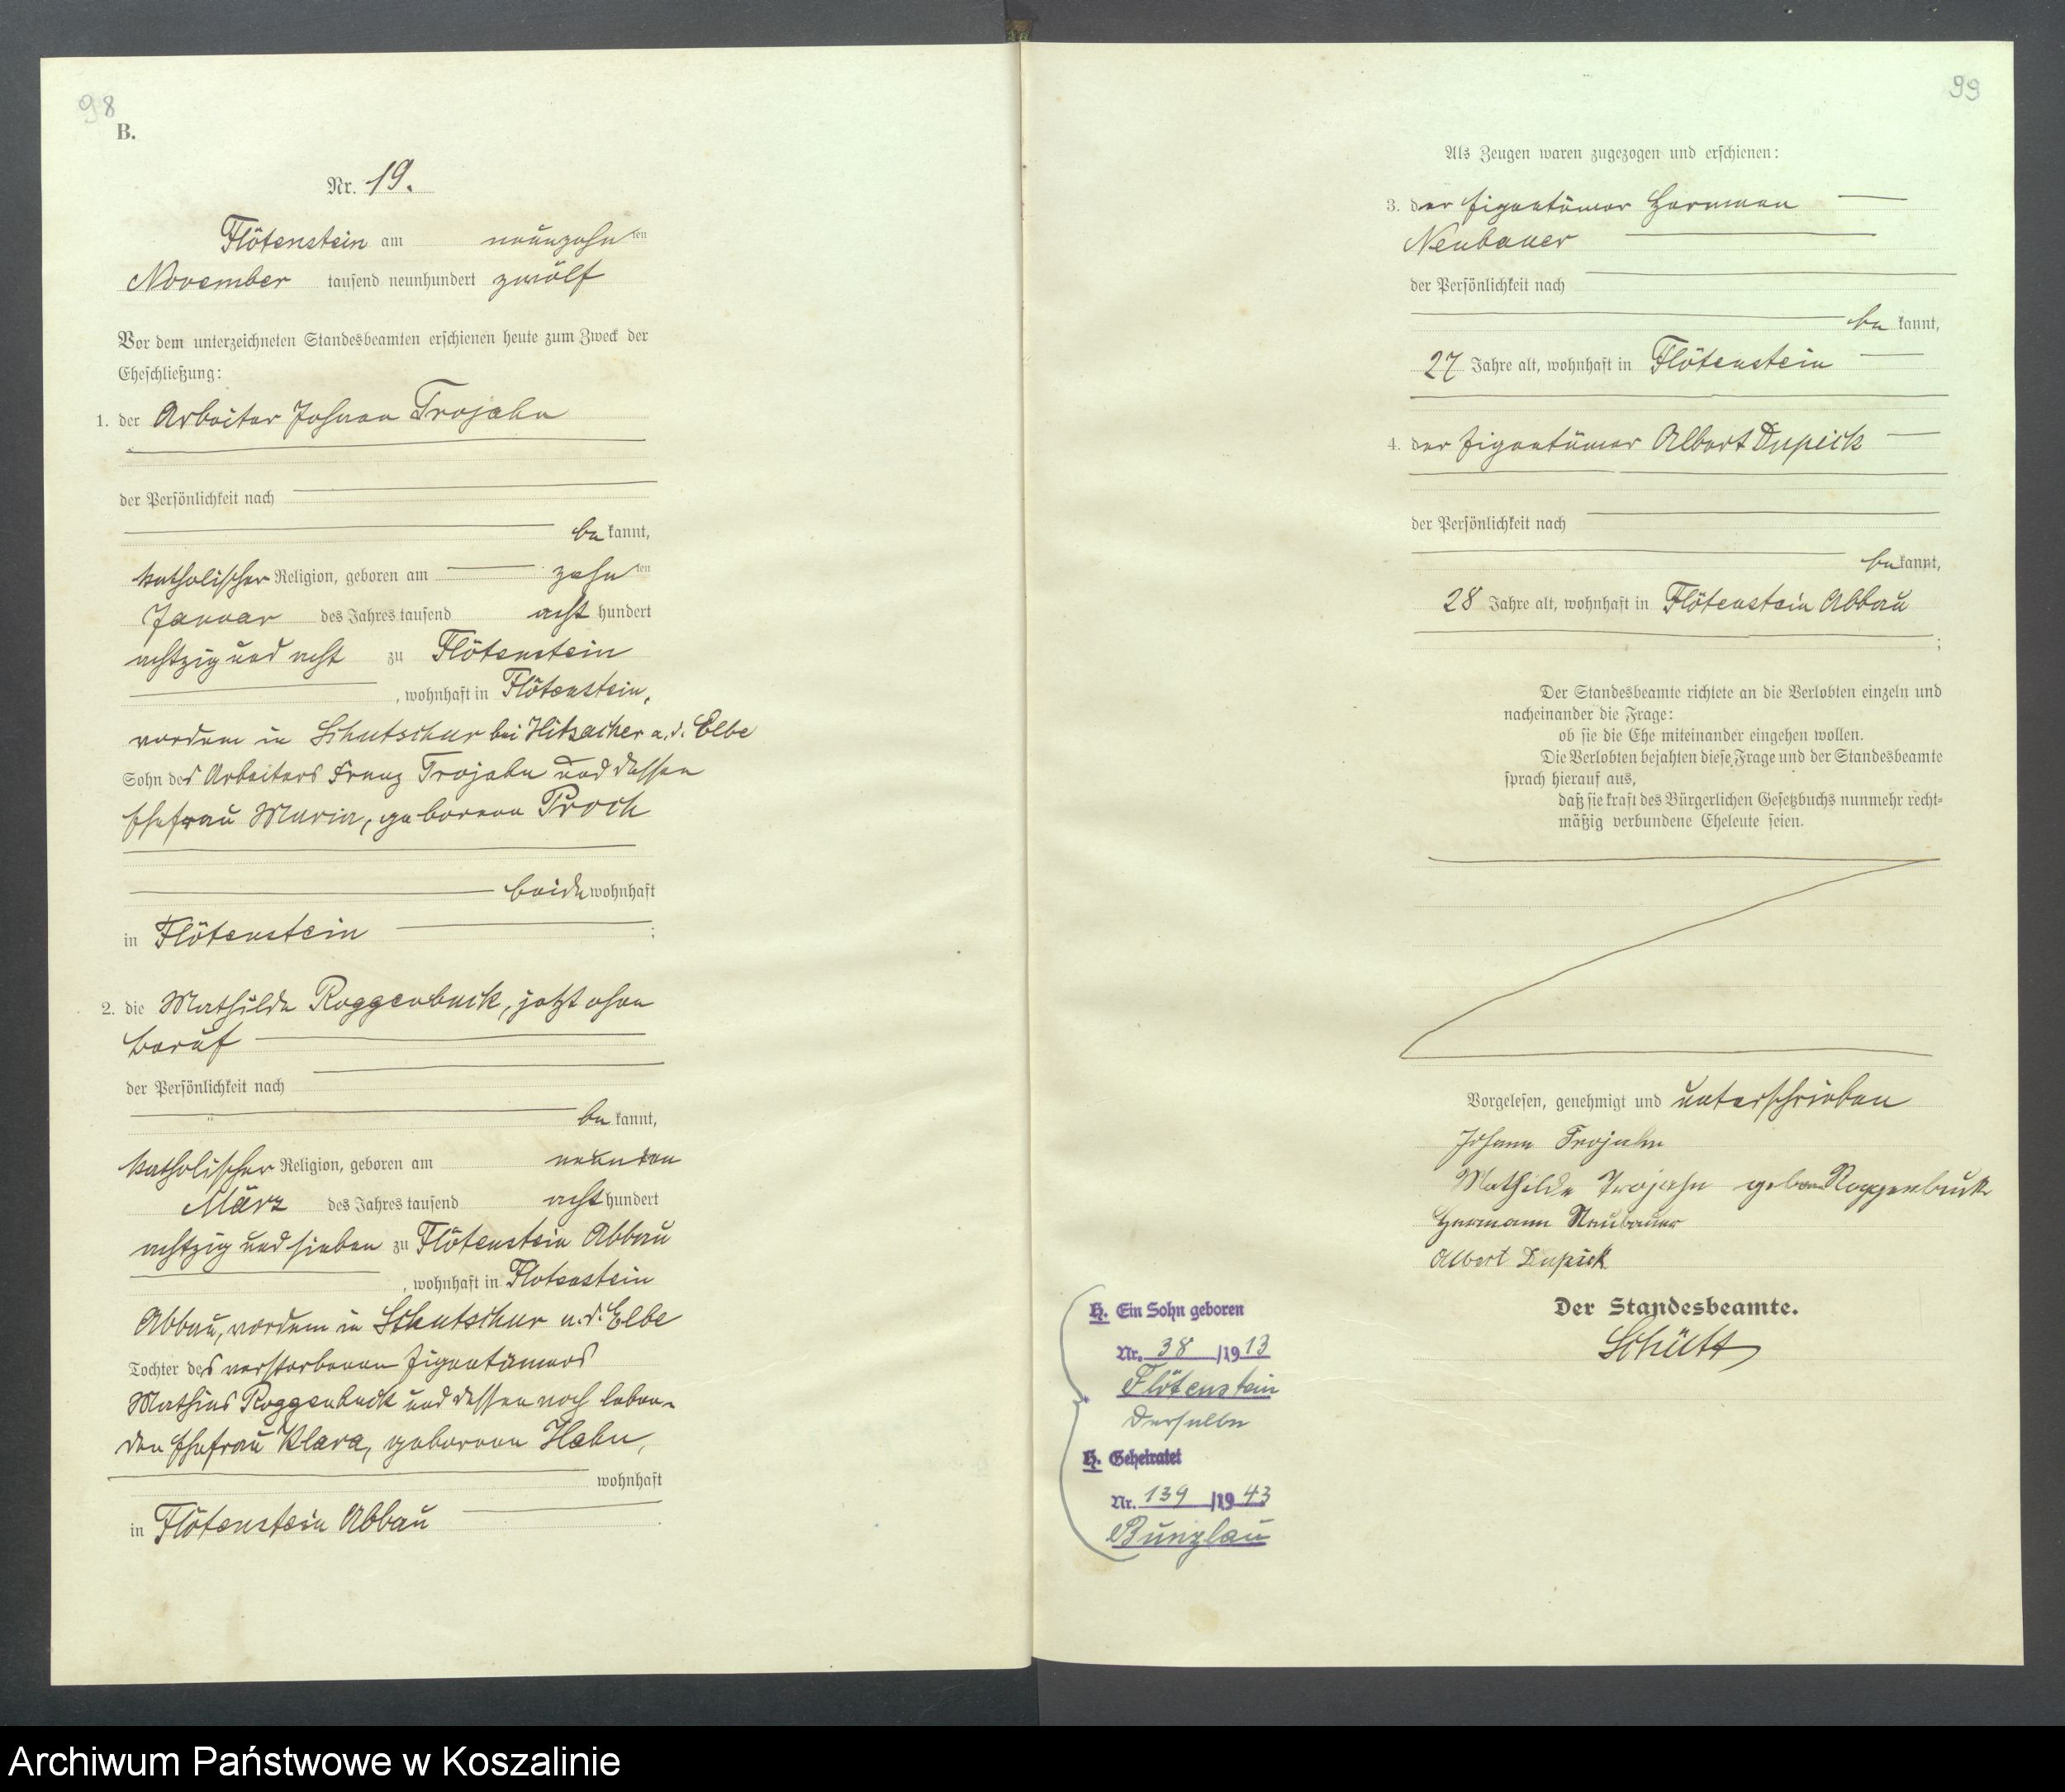 98
B.
Nr. 19.
Flötenstein am neunzehnten
November tausend neunhundert zwölf
Vor dem unterzeichneten Standesbeamten erschienen heute zum Zweck der
Eheschließung:
1. der Arbeiter Johann Trojahn
der Persönlichkeit nach
be kannt,
katholischer Religion, geboren am zehnten
Januar des Jahres tausend acht hundert
achtzig und acht zu Flötenstein
, wohnhaft in Flötenstein,
vordem in Schutschur bei Hitzacker a. d. Elbe
Sohn des Arbeiters Franz Trojahn und dessen
Ehefrau Maria, geborene Proch
beide wohnhaft
in Flötenstein ;
2. die Mathilde Roggenbuck, jetzt ohne
Beruf
der Persönlichkeit nach
be kannt,
katholischer Religion, geboren am neunten
März des Jahres tausend acht hundert
achtzig und sieben zu Flötenstein Abbau
, wohnhaft in Flötenstein
Abbau, vordem in Schutschur a. d. Elbe
Tochter des verstorbenen Eigentümers
Mathias Roggenbuck und dessen noch leben-
den Ehefrau Klara, geborene Hahn,
wohnhaft
in Flötenstein Abbau
99
Als Zeugen waren zugezogen und erschienen:
3. der Eigentümer Herman
Neubauer
der Persönlichkeit nach
be kannt,
27 Jahre alt, wohnhaft in Flötenstein
4. der Eigentümer Albert Dupick
der Persönlichkeit nach
be kannt,
28 Jahre alt, wohnhaft in Flötenstein Abbau
;
Der Standesbeamte richtete an die Verlobten einzeln und
nacheinander die Frage:
ob sie die Ehe miteinander eingehen wollen.
Die Verlobten bejahten diese Frage und der Standesbeamte
sprach hierauf aus,
daß sie kraft des Bürgerlichen Gesetzbuchs nunmehr recht=
mäßig verbundene Eheleute seien.
Vorgelesen, genehmigt und unterschrieben
Johann Trojahn
Mathilde Trojahn geborene Roggenbuck
Hermann Neubauer
Albert Dupick
Der Standesbeamte.
Schütt
H. Ein Sohn geboren
Nr. 38 /1913
Flötenstein
Derselbe
H. Geheiratet
Nr. 139 /1943
Bunzlau
Archiwum Państwowe w Koszalinie